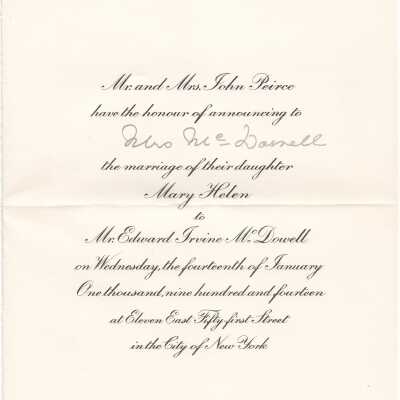 Mr. and Mrs. John Peirce
have the honour of announcing to
Mrs McDowell
the marriage of their daughter
Mary Helen
to
Mr. Edward Irvine McDowell
on Wednesday, the fourteenth of January
One thousand, nine hundred and fourteen
at Eleven East Fifty-first Street
in the City of New York